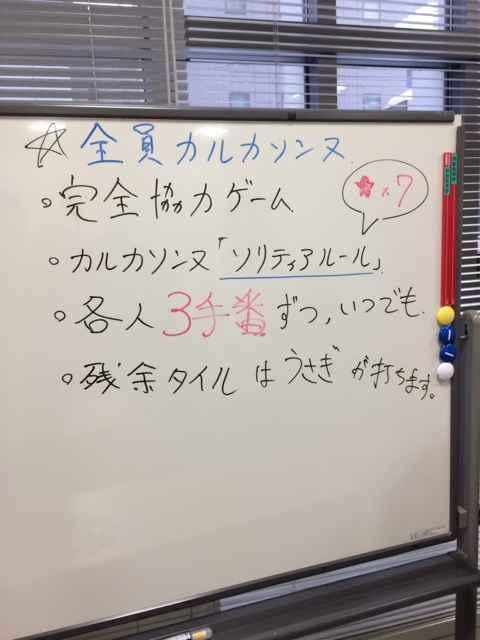 ☆ 全員カルカソンヌ
×7
。完全協力ゲーム
。カルカソンヌ「ソリティアルール」
。各人3手番ずつ,いつでも
。残余タイルはうさぎが打ちます。